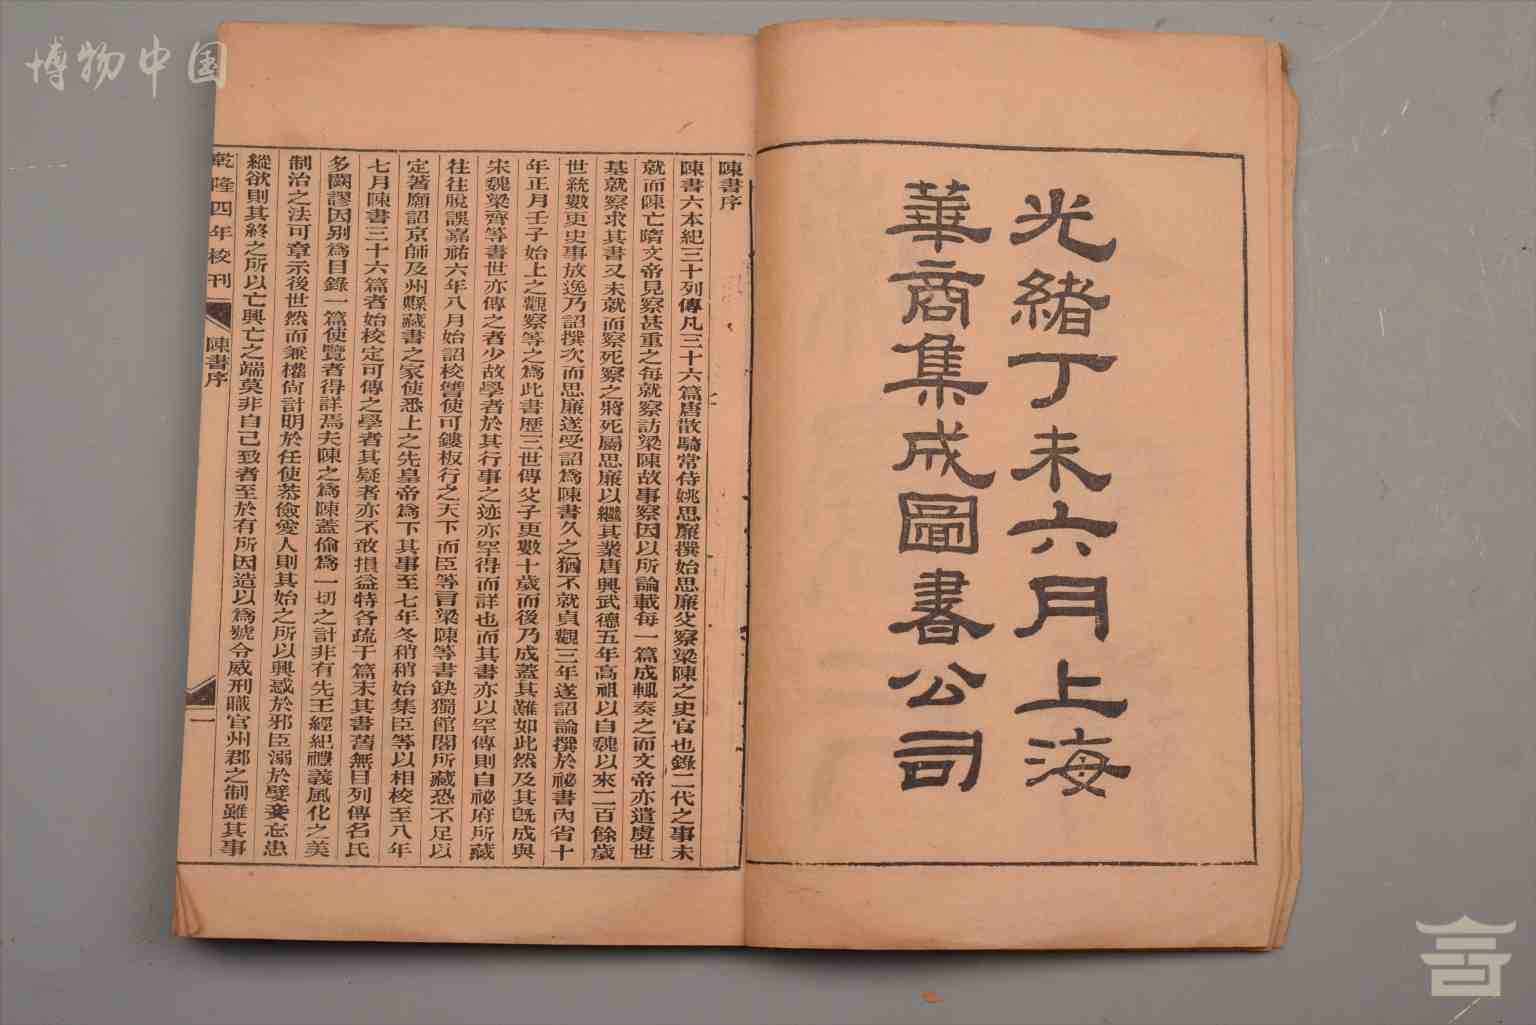 博物中国
光緒丁未六月上海
華商集成圖書公司
陳書序
陳書六本紀三十列傳凡三十六篇唐散騎常侍姚思廉撰始思廉父察梁陳之史官也錄二代之事未
就而陳亡隋文帝見察甚重之每就察訪梁陳故事察因以所論載每一篇成輒奏之而文帝亦遣虞世
基就察求其書又未就而察死察之將死屬思廉以繼其業唐興武德五年高祖以自魏以來二百餘歲
世統數更史事放逸乃詔撰次而思廉遂受詔爲陳書久之猶不就貞觀三年遂詔論撰於祕書內省十
年正月壬子始上之觀察等之爲此書歷三世傳父子更數十歲而後乃成蓋其難如此然及其旣成與
宋魏梁齊等書世亦傳之者少故學者於其行事之迹亦罕得而詳也而其書亦以罕傳則自祕府所藏
往往脫誤嘉祐六年八月始詔校讐使可鏤板行之天下而臣等言梁陳等書缺獨館閣所藏恐不足以
定著願詔京師及州縣藏書之家使悉上之先皇帝爲下其事至七年冬稍稍始集臣等以相校至八年
七月陳書三十六篇者始校定可傳之學者其疑者亦不敢損益特各疏于篇末其書舊無目列傳名氏
多闕謬因别爲目錄一篇使覽者得詳焉夫陳之爲陳蓋偷爲一切之計非有先王經紀禮義風化之美
制治之法可章示後世然而兼權尚計明於任使恭儉愛人則其始之所以興惑於邪臣溺於嬖妾忘患
縱欲則其終之所以亡興亡之端莫非自己致者至於有所因造以爲號令威刑職官州郡之制雖其事
乾隆四年校刊
陳書序
一